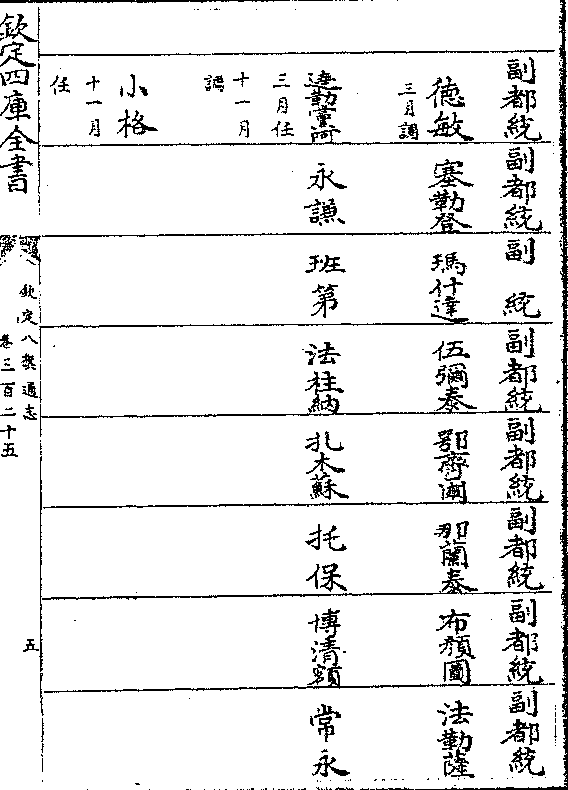 副都統
副都統
副 統
副都統
副都統
副都統
副都統
副都統
德敏
三月調
塞勒登
瑪什達
伍彌泰
鄂齊
那蘭泰
布顏圖
法勒薩
達勒黨阿
三月任
十一月
調
永謙
班第
法柱納
扎木蘇
托保
博清額
常永
小格
十一月
任
欽定四庫全書
欽定八旗通志
卷三百二十五
五